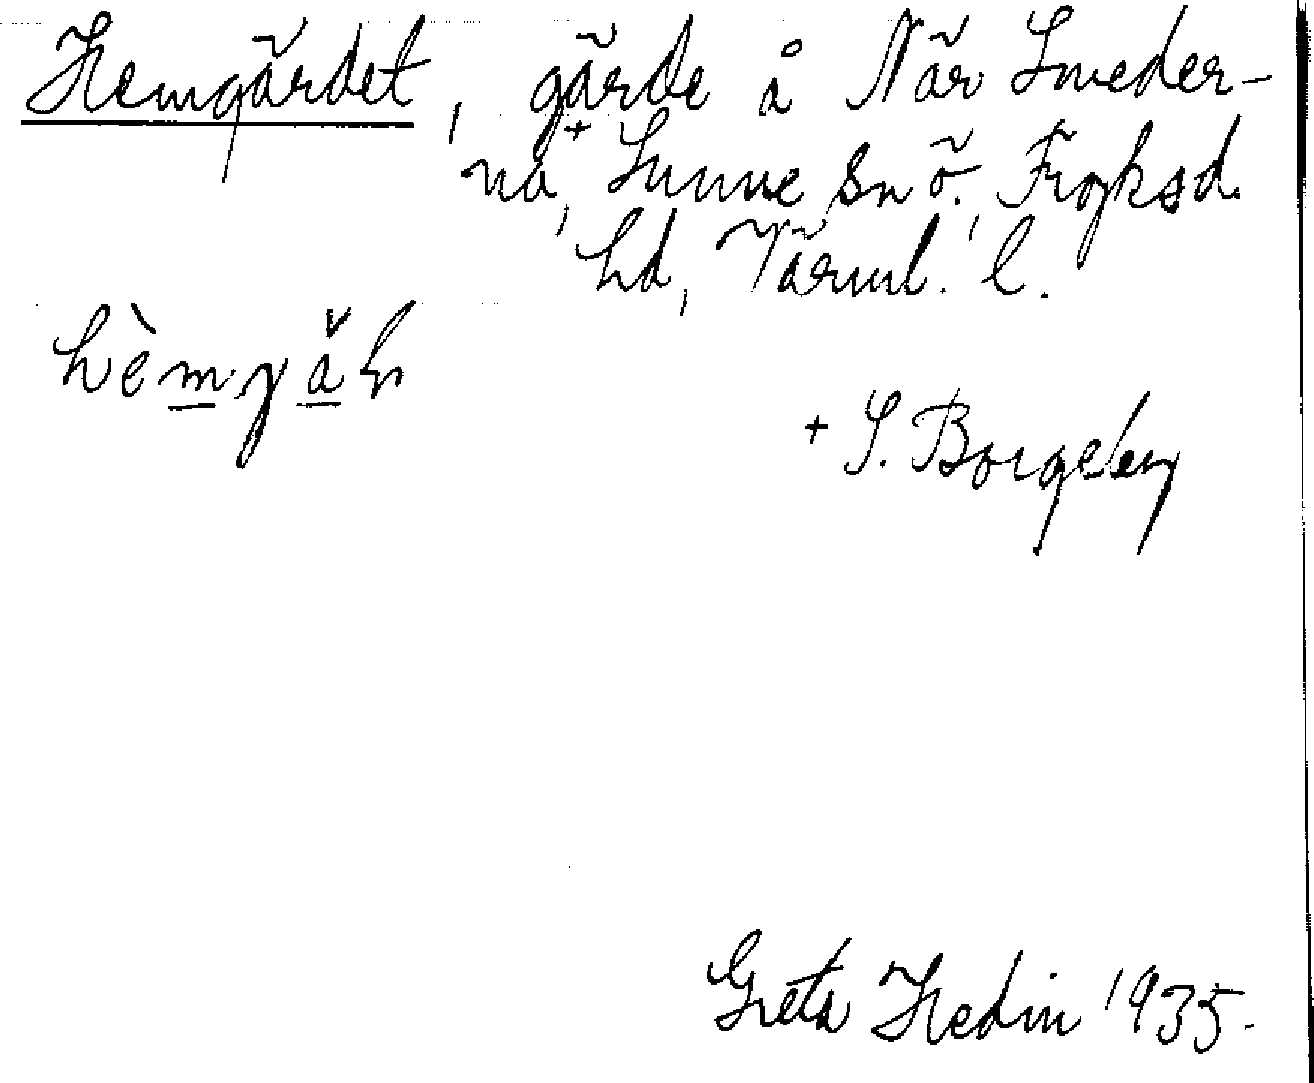 Hemgärdet, gärde å När Smeder-
na,+ Sunne sn ö., Fryksd.
hd, Värml. l.
+ S. Borgeby
Greta Hedin 1935.